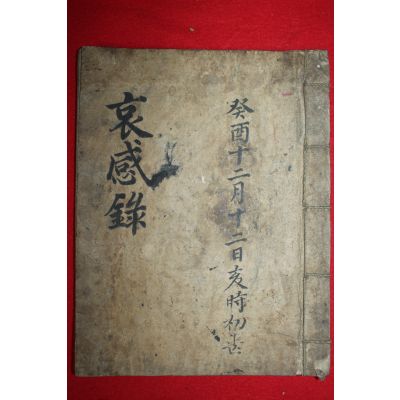 癸酉十二月十二日亥時初喪
哀感錄